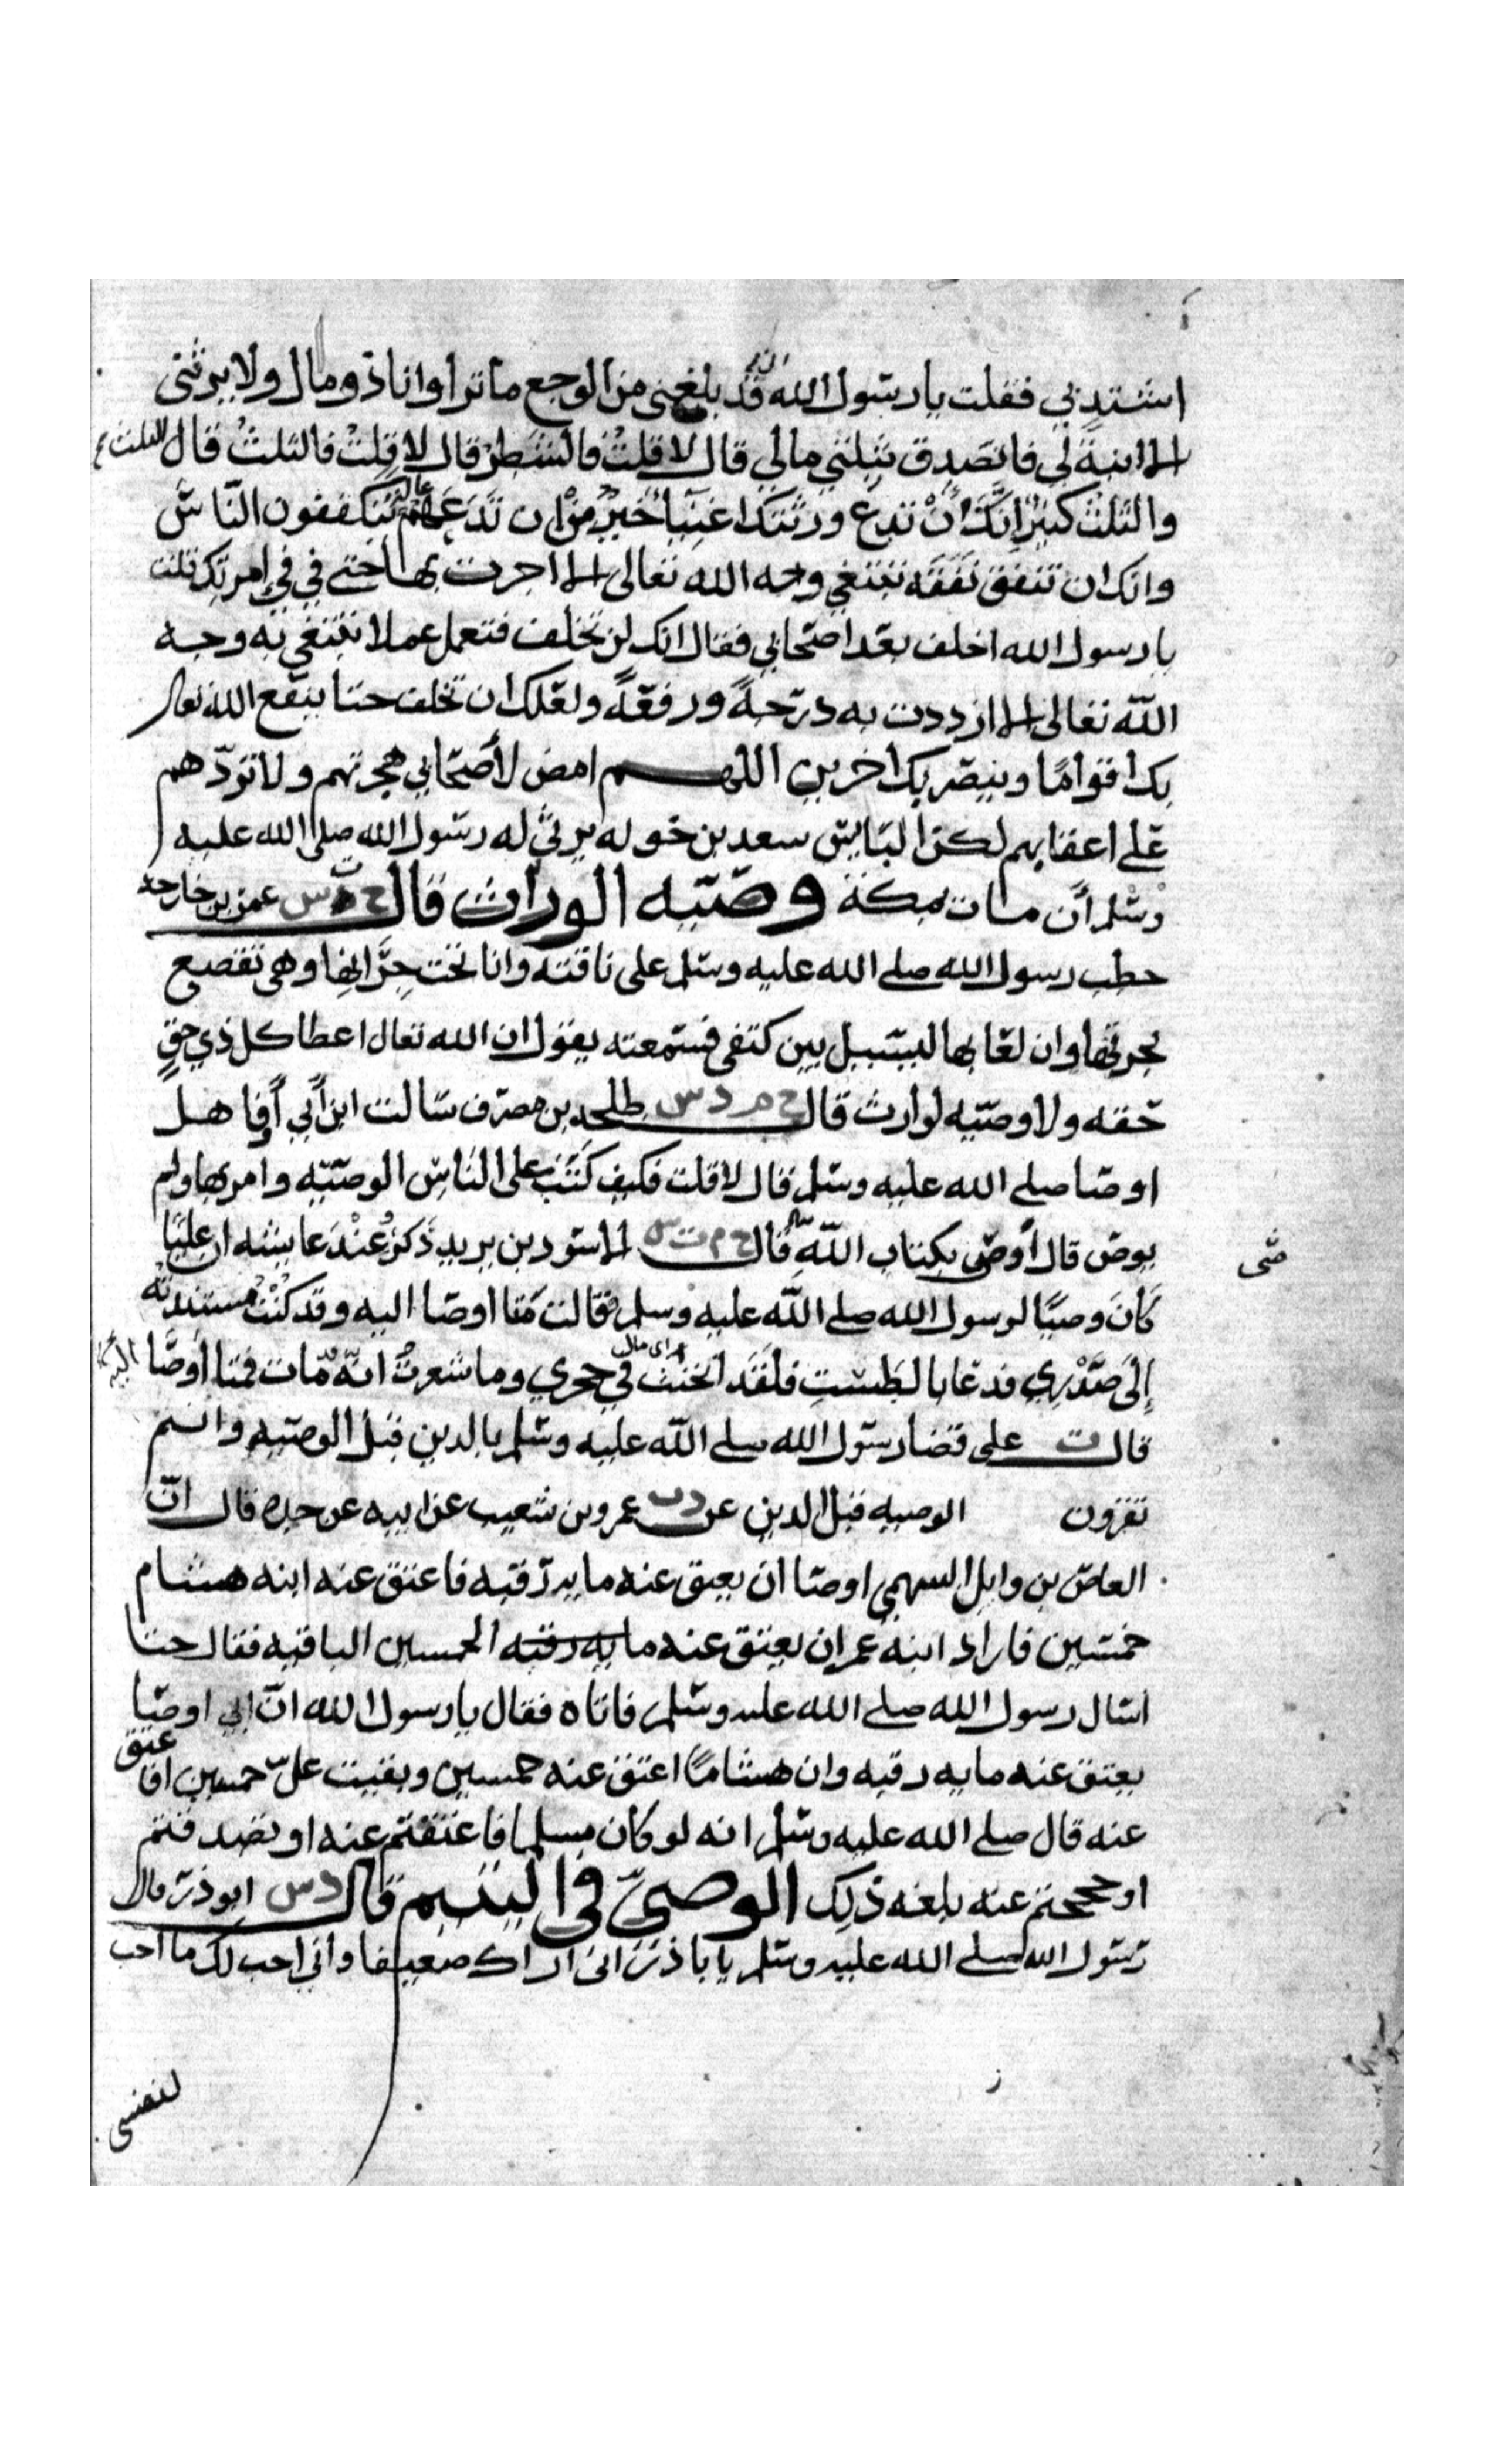 اشتد بي فقلت يا رسول الله اني قد بلغ بي من الوجع ما ترا وانا ذو مال ولا يرثني
الا ابنة لي فاتصدق بثلثي مالي قال لا قلت فالشطر قال لا قلت فالثلث قال الثلث
والثلث كثير انك أن تدع ورثتك اغنيا خير من ان تدعهم عالة يتكففون الناس
وانك ان تنفق نفقه تبتغي وجه الله تعالى الا اجرت بها حتى في في امرتك قلت
يا رسول الله اخلف بعد اصحابي فقال انك لن تخلف فتعمل عملا تبتغي به وجه
الله تعالى الا ازددت به درجة ورفعة ولعلك ان تخلف حتا ينتفع الله تعالى
بك اقواما وينصر بك اخرين اللهم امض لأصحابي هجرتهم ولا تردهم
على اعقابهم لكن البايس سعد بن خوله يرثي له رسول الله صلى الله عليه
وسلم أن مات بمكة وصيه الوراث قال ح ت س عمرو بن خارجة
خطب رسول الله صلى الله عليه وسلم على ناقته وانا تحت جرانها وهي تقصع
بجرتها وان لعابها ليسيل بين كتفي فسمعته يقول ان الله تعال اعطا كل ذي حق
حقه ولا وصيه لوارث قال خ م د س طلحه بن مصرف سالت ابن أبي أوفا هل
اوصا صلى الله عليه وسلم قال لا قلت فكيف كتب على الناس الوصيه وامر بها ولم
يوص قال أوصى بكتاب الله قال خ م ت س الاسود بن يزيد ذكر عند عايشه ان عليا
صى
كان وصيا لرسول الله صلى الله عليه وسلم فقالت متا اوصا اليه وقد كنت مسندته
إلى صدري فدعا بالطست فلقد انخنث اي مال في حجري وما شعرت انه مات فمتا أوصا اليه
قال ت على قضا رسول الله صلى الله عليه وسلم بالدين قبل الوصيه وانتم
تقرون الوصيه قبل الدين عن د ت عمرو بن شعيب عن ابيه عن جده قال ان
العاص بن وايل السهمي اوصا ان يعتق عنه مايه رقبه فاعتق عنه ابنه هشام
خمسين فاراد ابنه عمر ان يعتق عنه مايه رقبه الخمسين الباقيه فقال حتا
اسال رسول الله صلى الله عليه وسلم فاتاه فقال يا رسول الله ان ابي اوصا
يعتق عنه مايه رقبه وان هشاما اعتق عنه خمسين وبقيت علي خمسين افاعتق
عنه قال صلى الله عليه وسلم انه لو كان مسلما فاعتقتم عنه او تصدقتم
او حججتم عنه بلغه ذلك الوصي في اليتيم قال د س ابو ذر قال
رسول الله صلى الله عليه وسلم يا با ذر اني اراك ضعيفا واني احب لك ما احب
لنفسي